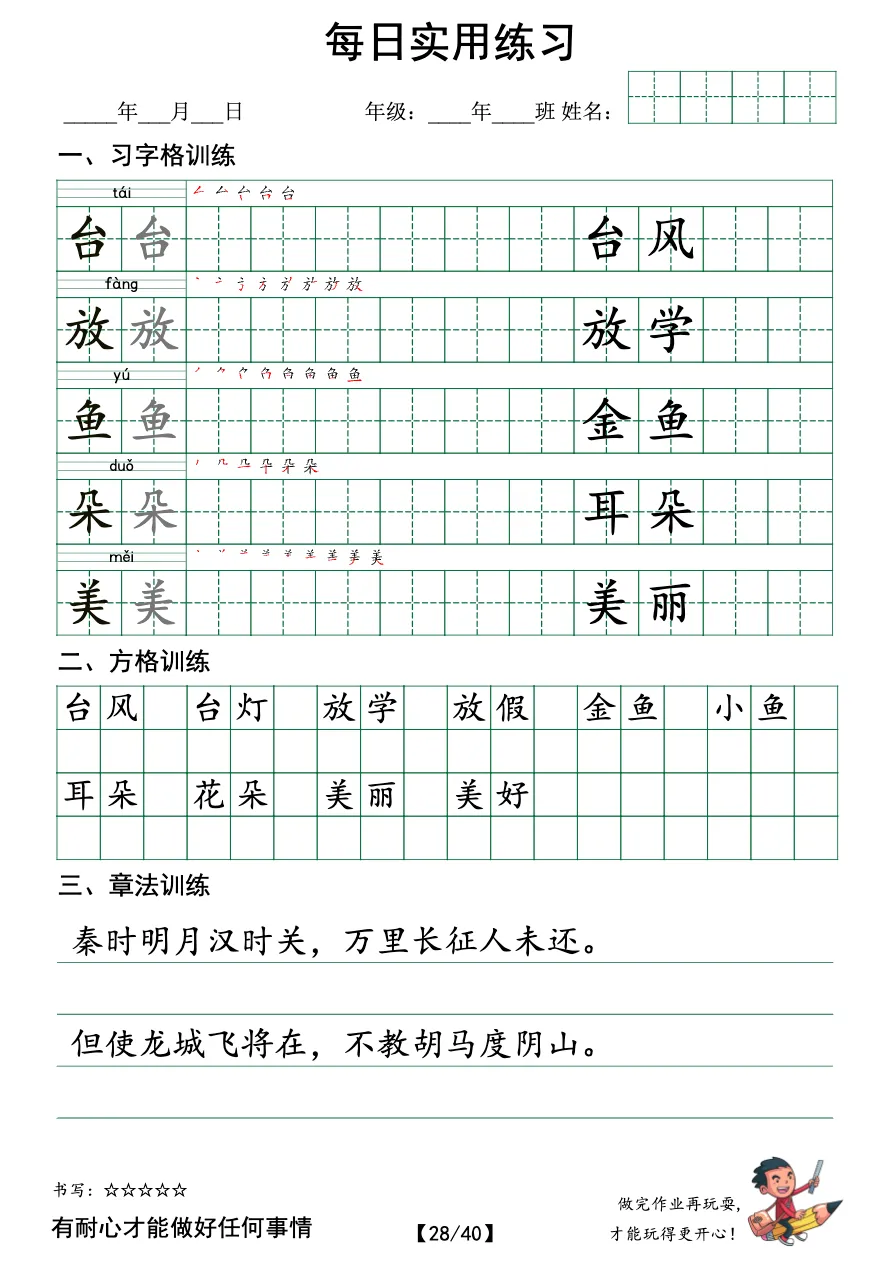 每日实用练习
_____年___月___日 年级：____年____班 姓名：
一、习字格训练
tái
台 台 台 风
fàng
放 放 放 学
yú
鱼 鱼 金 鱼
duǒ
朵 朵 耳 朵
měi
美 美 美 丽
二、方格训练
台风 台灯 放学 放假 金鱼 小鱼
耳朵 花朵 美丽 美好
三、章法训练
秦时明月汉时关，万里长征人未还。
但使龙城飞将在，不教胡马度阴山。
书写：☆☆☆☆☆
有耐心才能做好任何事情
【28/40】
做完作业再玩耍，
才能玩得更开心！